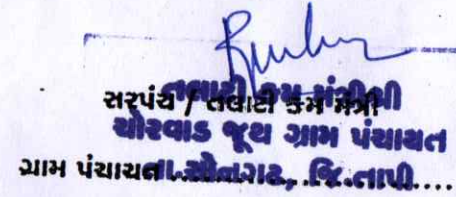 તલાટી કમ મંત્રીશ્રી
સરપંચ / તલાટી કમ મંત્રી
ચોરવાડ જૂથ ગ્રામ પંચાયત
ગ્રામ પંચાયત
તા.સોનગઢ, જિ.તાપી